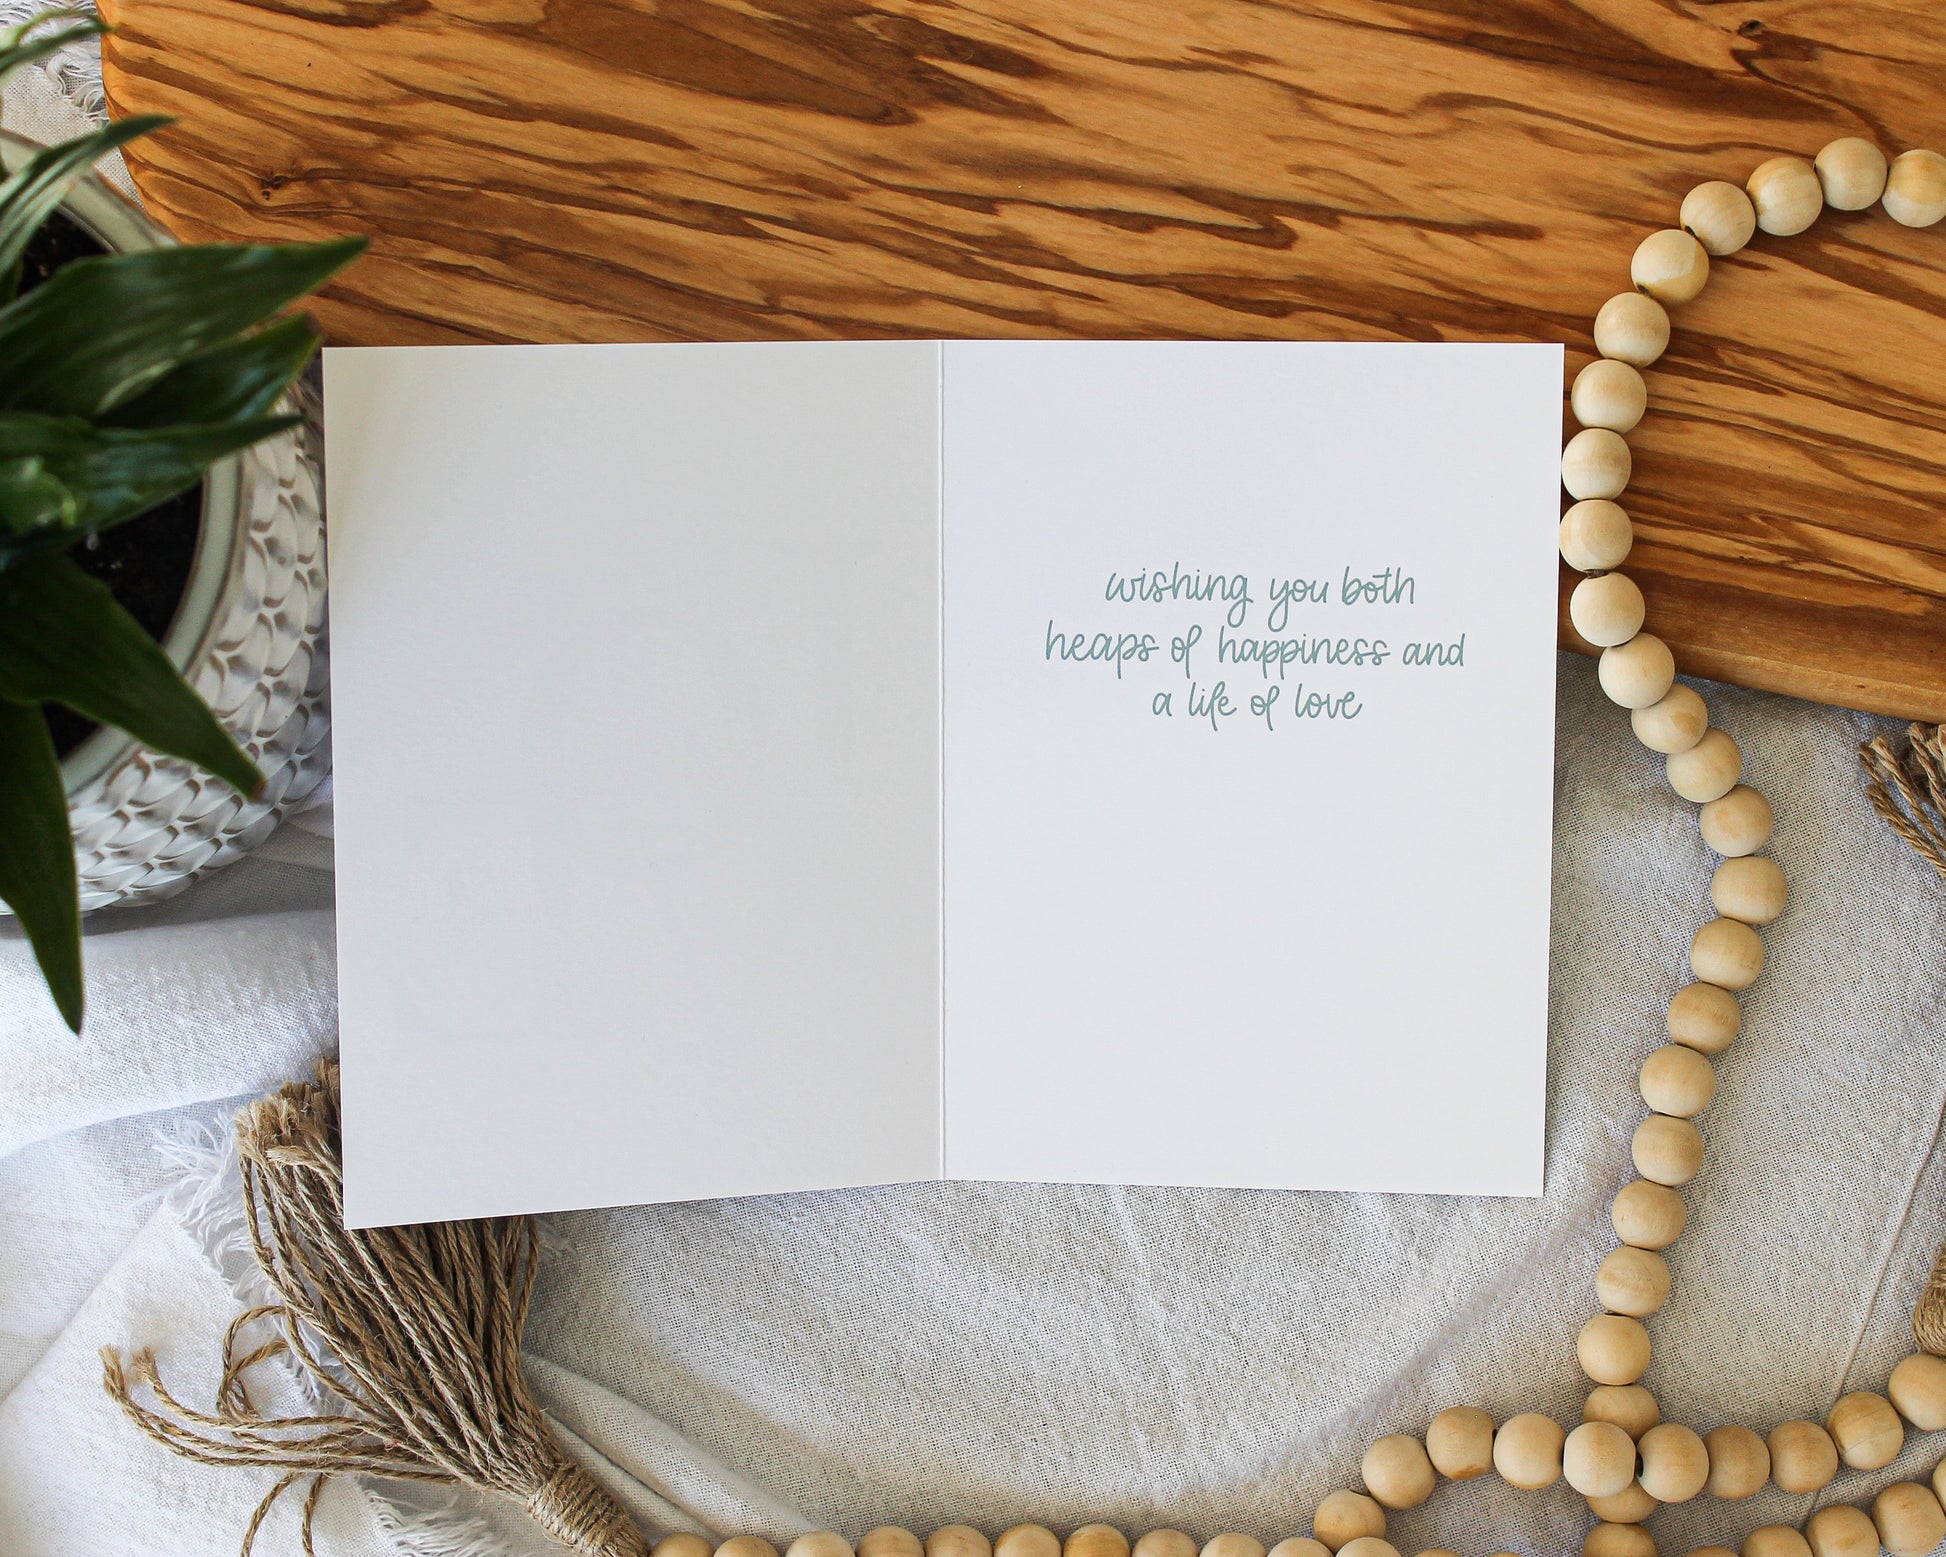 wishing you both
heaps of happiness and
a life of love